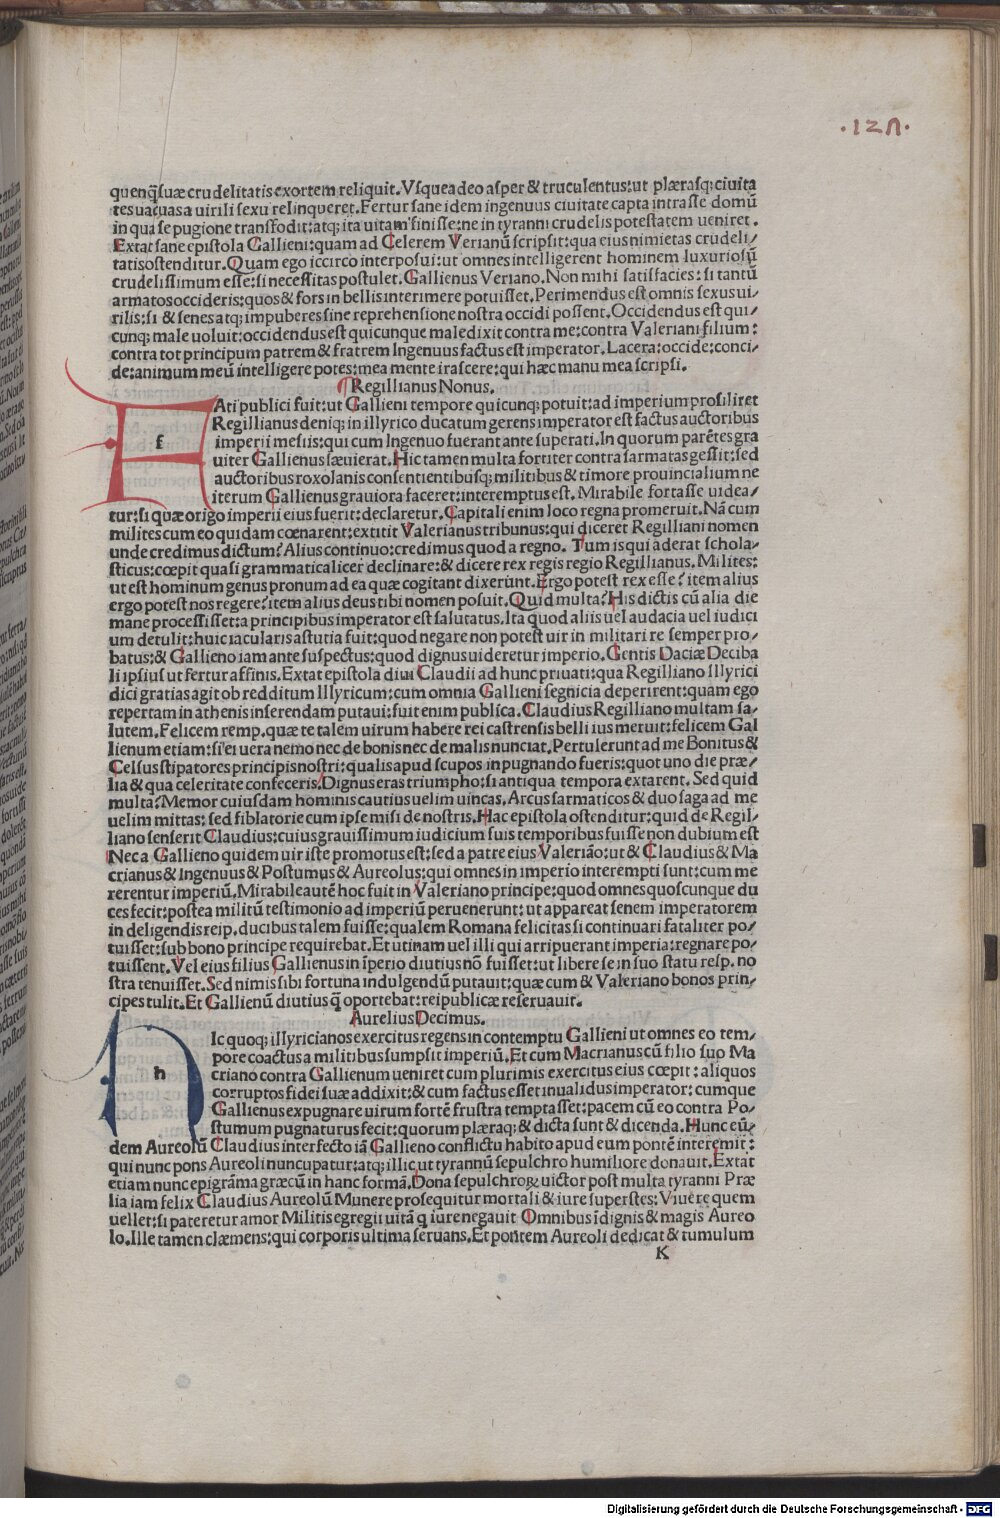 ·127·
quenq̃ suæ crudelitatis exortem reliquit. Vsqueadeo asper & truculentus: ut plærasq; ciuita
tes uacuas a uirili sexu relinqueret. Fertur sane idem ingenuus ciuitate capta intrasse domũ
in qua se pugione transfodit: atq; ita uitam finisse: ne in tyranni crudelis potestatem ueniret.
Extat sane epistola Gallieni: quam ad Celerem Verianũ scripsit: qua eius nimietas crudeli/
tatis ostenditur. Quam ego iccirco interposui: ut omnes intelligerent hominem luxuriosũ
crudelissimum esse: si necessitas postulet. Gallienus Veriano. Non mihi satisfacies: si tantũ
armatos occideris: quos & fors in bellis interimere potuisset. Perimendus est omnis sexus ui/
rilis: si & senes atq; impuberes sine reprehensione nostra occidi possent. Occidendus est qui/
cunq; male uoluit: occidendus est quicunque maledixit contra me: contra Valeriani filium:
contra tot principum patrem & fratrem Ingenuus factus est imperator. Lacera: occide: conci/
de: animum meũ intelligere potes: mea mente irascere: qui hæc manu mea scripsi.
Regillianus Nonus.
f Ati publici fuit: ut Gallieni tempore quicunq; potuit: ad imperium prosiliret
Regillianus deniq; in illyrico ducatum gerens imperator est factus auctoribus
imperii mesiis: qui cum Ingenuo fuerant ante superati. In quorum parẽtes gra
uiter Gallienus sæuierat. Hic tamen multa fortiter contra sarmatas gessit: sed
auctoribus roxolanis consentientibusq; militibus & timore prouincialium ne
iterum Gallienus grauiora faceret: interemptus est. Mirabile fortasse uidea/
tur: si quæ origo imperii eius fuerit: declaretur. Capitali enim loco regna promeruit. Nã cum
milites cum eo quidam cœnarent: extitit Valerianus tribunus: qui diceret Regilliani nomen
unde credimus dictum? Alius continuo: credimus quod a regno. Tum is qui aderat schola/
sticus: cœpit quasi grammaticaliter declinare: & dicere rex regis regio Regillianus. Milites:
ut est hominum genus pronum ad ea quæ cogitant dixerunt. Ergo potest rex esse? item alius
ergo potest nos regere? item alius deus tibi nomen posuit. Quid multa? His dictis cũ alia die
mane processisset: a principibus imperator est salutatus. Ita quod aliis uel audacia uel iudici
um detulit: huic iacularis astutia fuit: quod negare non potest uir in militari re semper pro/
batus: & Gallieno iam ante suspectus: quod dignus uideretur imperio. Gentis Daciæ Deciba
li ipsius ut fertur affinis. Extat epistola diui Claudii ad hunc priuati: qua Regilliano Illyrici
dici gratias agit ob redditum Illyricum: cum omnia Gallieni segnicia deperirent: quam ego
repertam in athenis inserendam putaui: fuit enim publica. Claudius Regilliano multam sa/
lutem. Felicem remp. quæ te talem uirum habere rei castrensis belli ius meruit: felicem Gal
lienum etiam: si ei uera nemo nec de bonis nec de malis nunciat. Pertulerunt ad me Bonitus &
Celsus stipatores principis nostri: qualis apud scupos in pugnando fueris: quot uno die præ/
lia & qua celeritate confeceris. Dignus eras triumpho: si antiqua tempora extarent. Sed quid
multa? Memor cuiusdam hominis cautius uelim uincas. Arcus sarmaticos & duo saga ad me
uelim mittas: sed fiblatorie cum ipse misi de nostris. Hac epistola ostenditur: quid de Regil/
liano senserit Claudius: cuius grauissimum iudicium suis temporibus fuisse non dubium est
Nec a Gallieno quidem uir iste promotus est: sed a patre eius Valeriāo: ut & Claudius & Ma
crianus & Ingenuus & Postumus & Aureolus: qui omnes in imperio interempti sunt: cum me
rerentur imperiũ. Mirabile autẽ hoc fuit in Valeriano principe: quod omnes quoscunque du
ces fecit: postea militũ testimonio ad imperiũ peruenerunt: ut appareat senem imperatorem
in deligendis reip. ducibus talem fuisse: qualem Romana felicitas si continuari fataliter po/
tuisset: sub bono principe requirebat. Et utinam uel illi qui arripuerant imperia: regnare po/
tuissent. Vel eius filius Gallienus in ĩperio diutius nõ fuisset: ut libere se in suo statu resp. no
stra tenuisset. Sed nimis sibi fortuna indulgendũ putauit: quæ cum & Valeriano bonos prin/
cipes tulit. Et Gallienũ diutius q̃ oportebat: reipublicæ reseruauit.
Aurelius Decimus.
h Ic quoq; illyricianos exercitus regens in contemptu Gallieni ut omnes eo tem/
pore coactus a militibus sumpsit imperiũ. Et cum Macrianus cũ filio suo Ma
criano contra Gallienum ueniret cum plurimis exercitus eius cœpit: aliquos
corruptos fidei suæ addixit: & cum factus esset inualidus imperator: cumque
Gallienus expugnare uirum fortẽ frustra temptasset: pacem cũ eo contra Po/
stumum pugnaturus fecit: quorum plæraq; & dicta sunt & dicenda. Hunc eũ/
dem Aureolũ Claudius interfecto iã Gallieno conflictu habito apud eum pontẽ interemit:
qui nunc pons Aureoli nuncupatur: atq; illic ut tyrannũ sepulchro humiliore donauit. Extat
etiam nunc epigrãma græcũ in hanc formã. Dona sepulchroꝝ uictor post multa tyranni Præ
lia iam felix Claudius Aureolũ Munere prosequitur mortali & iure superstes: Viuere quem
uellet: si pateretur amor Militis egregii uitã q iure negauit Omnibus ĩdignis & magis Aureo
lo. Ille tamen clæmens: qui corporis ultima seruans. Et pontem Aureoli dedicat & tumulum
K
Digitalisierung gefördert durch die Deutsche Forschungsgemeinschaft - DFG